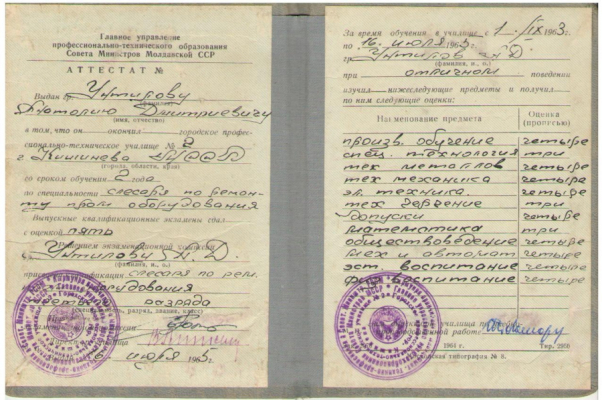 Главное управление
профессионально-технического образования
Совета Министров Молдавской ССР
АТТЕСТАТ №
Выдан гр. Унтилову
(фамилия)
Анаторию Дмитриевичу
(имя, отчество)
в том, что он окончил городское профес-
сионально-техническое училище № 2
г Кишинева МССР
(города, области, края)
со сроком обучения 2 года
по специальности слесаря по ремон-
ту пром оборудования
Выпускные квалификационные экзамены сдал
с оценкой пять
Решением экзаменационной комиссии
Унтилову А. Д.
(фамилия, и., о.)
квалификация слесаря по рем.
оборудования
разряда
разряд, звание, класс)
комиссии
училища
июля 1965
За время обучения в училище с 1. IX 1963 г.
по 16. июля 1965 г.
гр Унтилов А. Д.
(фамилия, и., о.)
при отличном поведении
изучил нижеследующие предметы и получил
по ним следующие оценки:
Наименование предмета Оценка (прописью)
произв. обучение четыре
спец. технология три
тех металлов четыре
тех механика четыре
эл. техника. четыре
тех черчение четыре
допуски четыре
математика три
обществоведение четыре
мех и автомат четыре
эст. воспитание четыре
физ. воспитание четыре
училища по
работе:
1964 г. Тир. 2500
типография № 8.